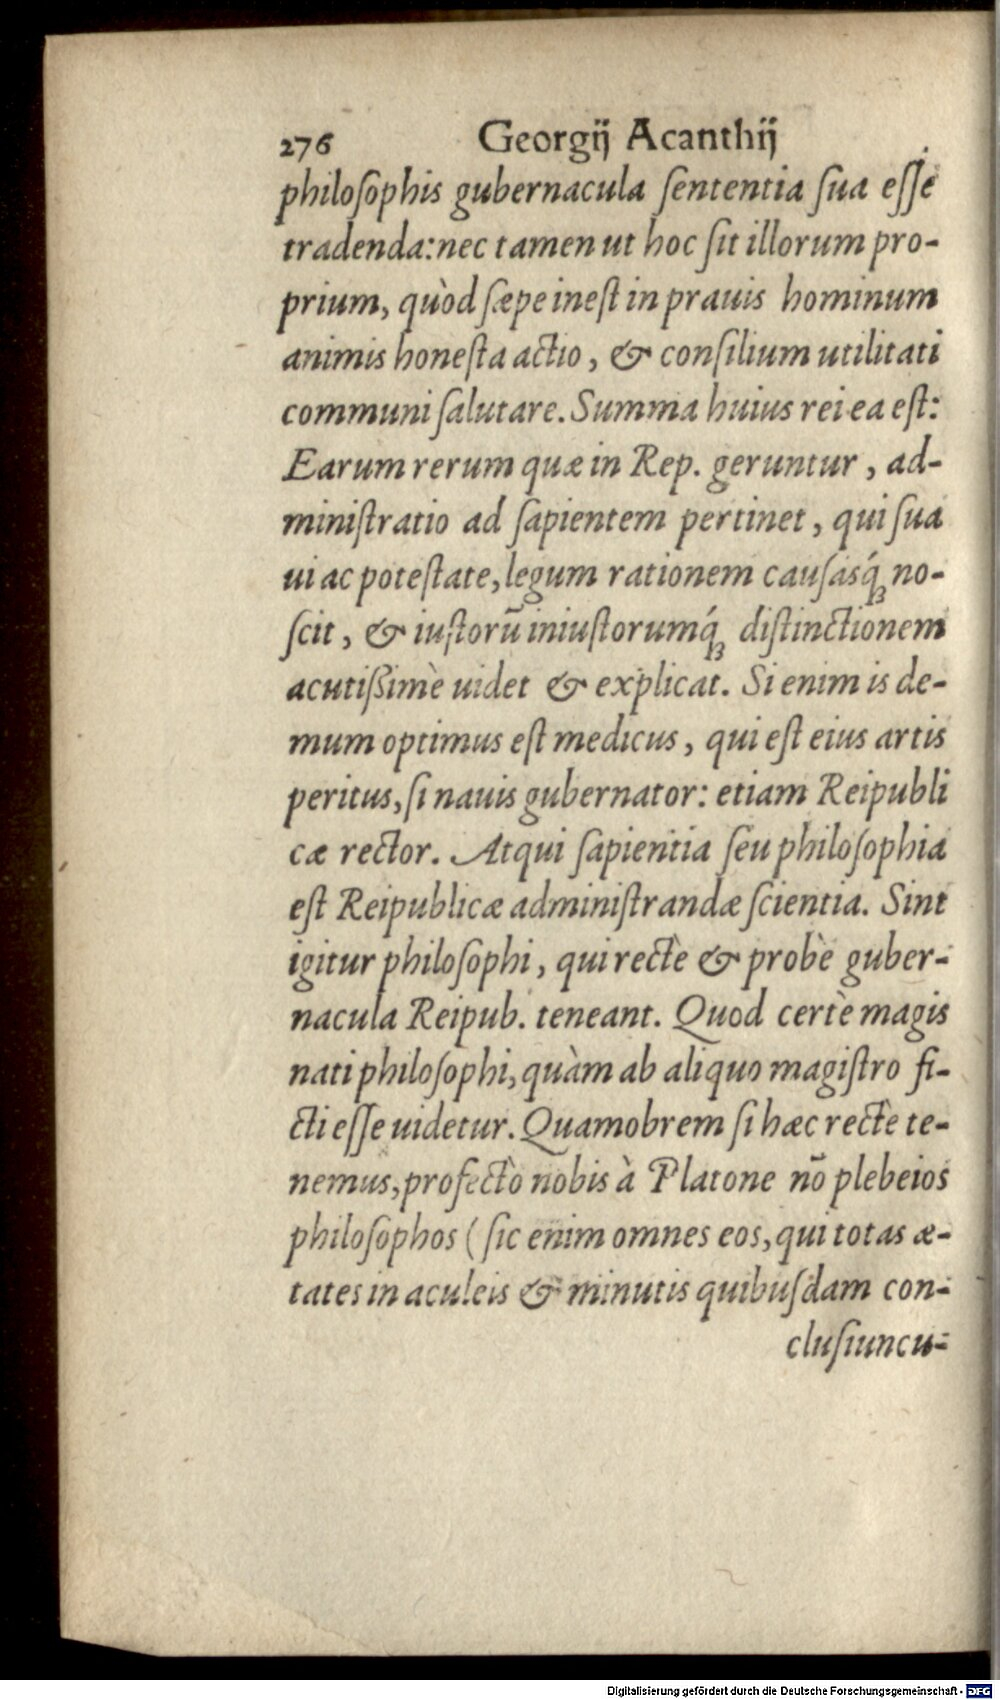 276 Georgij Acanthij
philosophis gubernacula sententia sua esse
tradenda: nec tamen ut hoc sit illorum pro-
prium, quòd sæpe inest in prauis hominum
animis honesta actio, & consilium utilitati
communi salutare. Summa huius rei ea est:
Earum rerum quæ in Rep. geruntur, ad-
ministratio ad sapientem pertinet, qui sua
ui ac potestate, legum rationem causasq́ꝫ no-
scit, & iustorū iniustorumq́ꝫ distinctionem
acutißimè uidet & explicat. Si enim is de-
mum optimus est medicus, qui est eius artis
peritus, si nauis gubernator: etiam Reipubli
cæ rector. Atqui sapientia seu philosophia
est Reipublicæ administrandæ scientia. Sint
igitur philosophi, qui rectè & probè guber-
nacula Reipub. teneant. Quod certè magis
nati philosophi, quàm ab aliquo magistro fi-
cti esse uidetur. Quamobrem si hæc rectè te-
nemus, profectò nobis à Platone nō plebeios
philosophos (sic enim omnes eos, qui totas æ-
tates in aculeis & minutis quibusdam con-
clusiuncu-
Digitalisierung gefördert durch die Deutsche Forschungsgemeinschaft - DFG